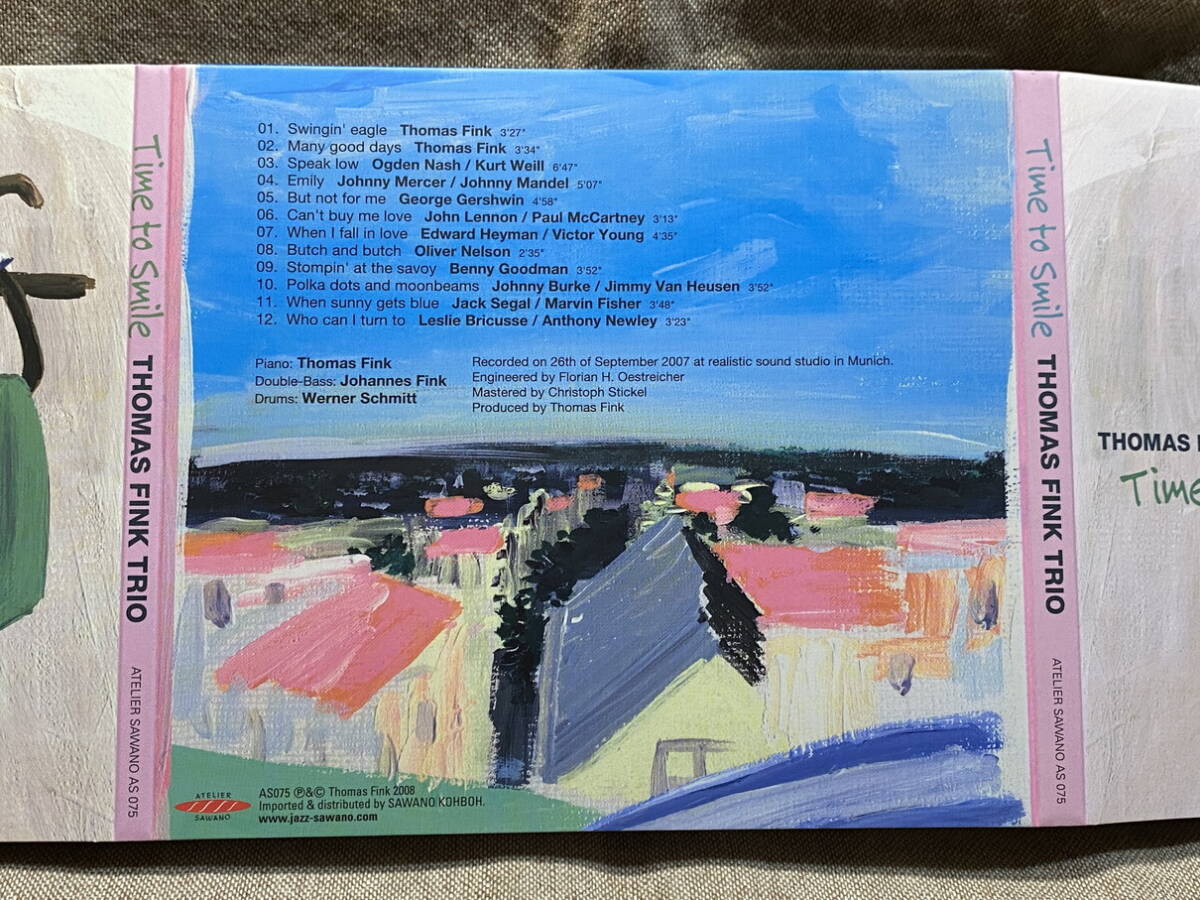 01. Swingin' eagle Thomas Fink 3'27"
02. Many good days Thomas Fink 3'34"
03. Speak low Ogden Nash / Kurt Weill 6'47"
04. Emily Johnny Mercer / Johnny Mandel 5'07"
05. But not for me George Gershwin 4'58"
06. Can't buy me love John Lennon / Paul McCartney 3'13"
07. When I fall in love Edward Heyman / Victor Young 4'35"
08. Butch and butch Oliver Nelson 2'35"
09. Stompin' at the savoy Benny Goodman 3'52"
10. Polka dots and moonbeams Johnny Burke / Jimmy Van Heusen 3'52"
11. When sunny gets blue Jack Segal / Marvin Fisher 3'48"
12. Who can I turn to Leslie Bricusse / Anthony Newley 3'23"
Piano: Thomas Fink
Double-Bass: Johannes Fink
Drums: Werner Schmitt
Recorded on 26th of September 2007 at realistic sound studio in Munich.
Engineered by Florian H. Oestreicher
Mastered by Christoph Stickel
Produced by Thomas Fink
ATELIER
SAWANO
AS075 ℗&© Thomas Fink 2008
Imported & distributed by SAWANO KOHBOH.
www.jazz-sawano.com
Time to Smile THOMAS FINK TRIO ATELIER SAWANO AS 075
Time to Smile THOMAS FINK TRIO ATELIER SAWANO AS 075
THOMAS
Time